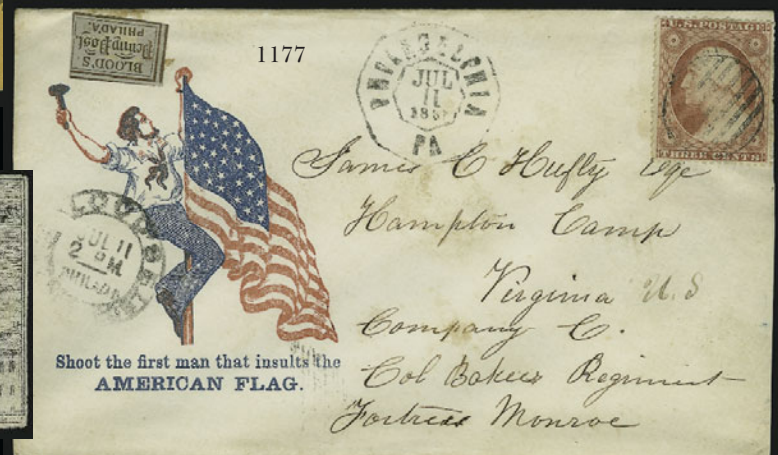 BLOOD'S
Penny Post
PHILAD'A.
1177
PHILADELPHIA
JUL
11
PA
U.S. POSTAGE
THREE CENTS
James C Hufty Esqe
Hampton Camp
Virginia U.S
Company C.
Col Bakers Regiment
Fortress Monroe
JUL 11
2 PM
PHILADA
Shoot the first man that insults the
AMERICAN FLAG.